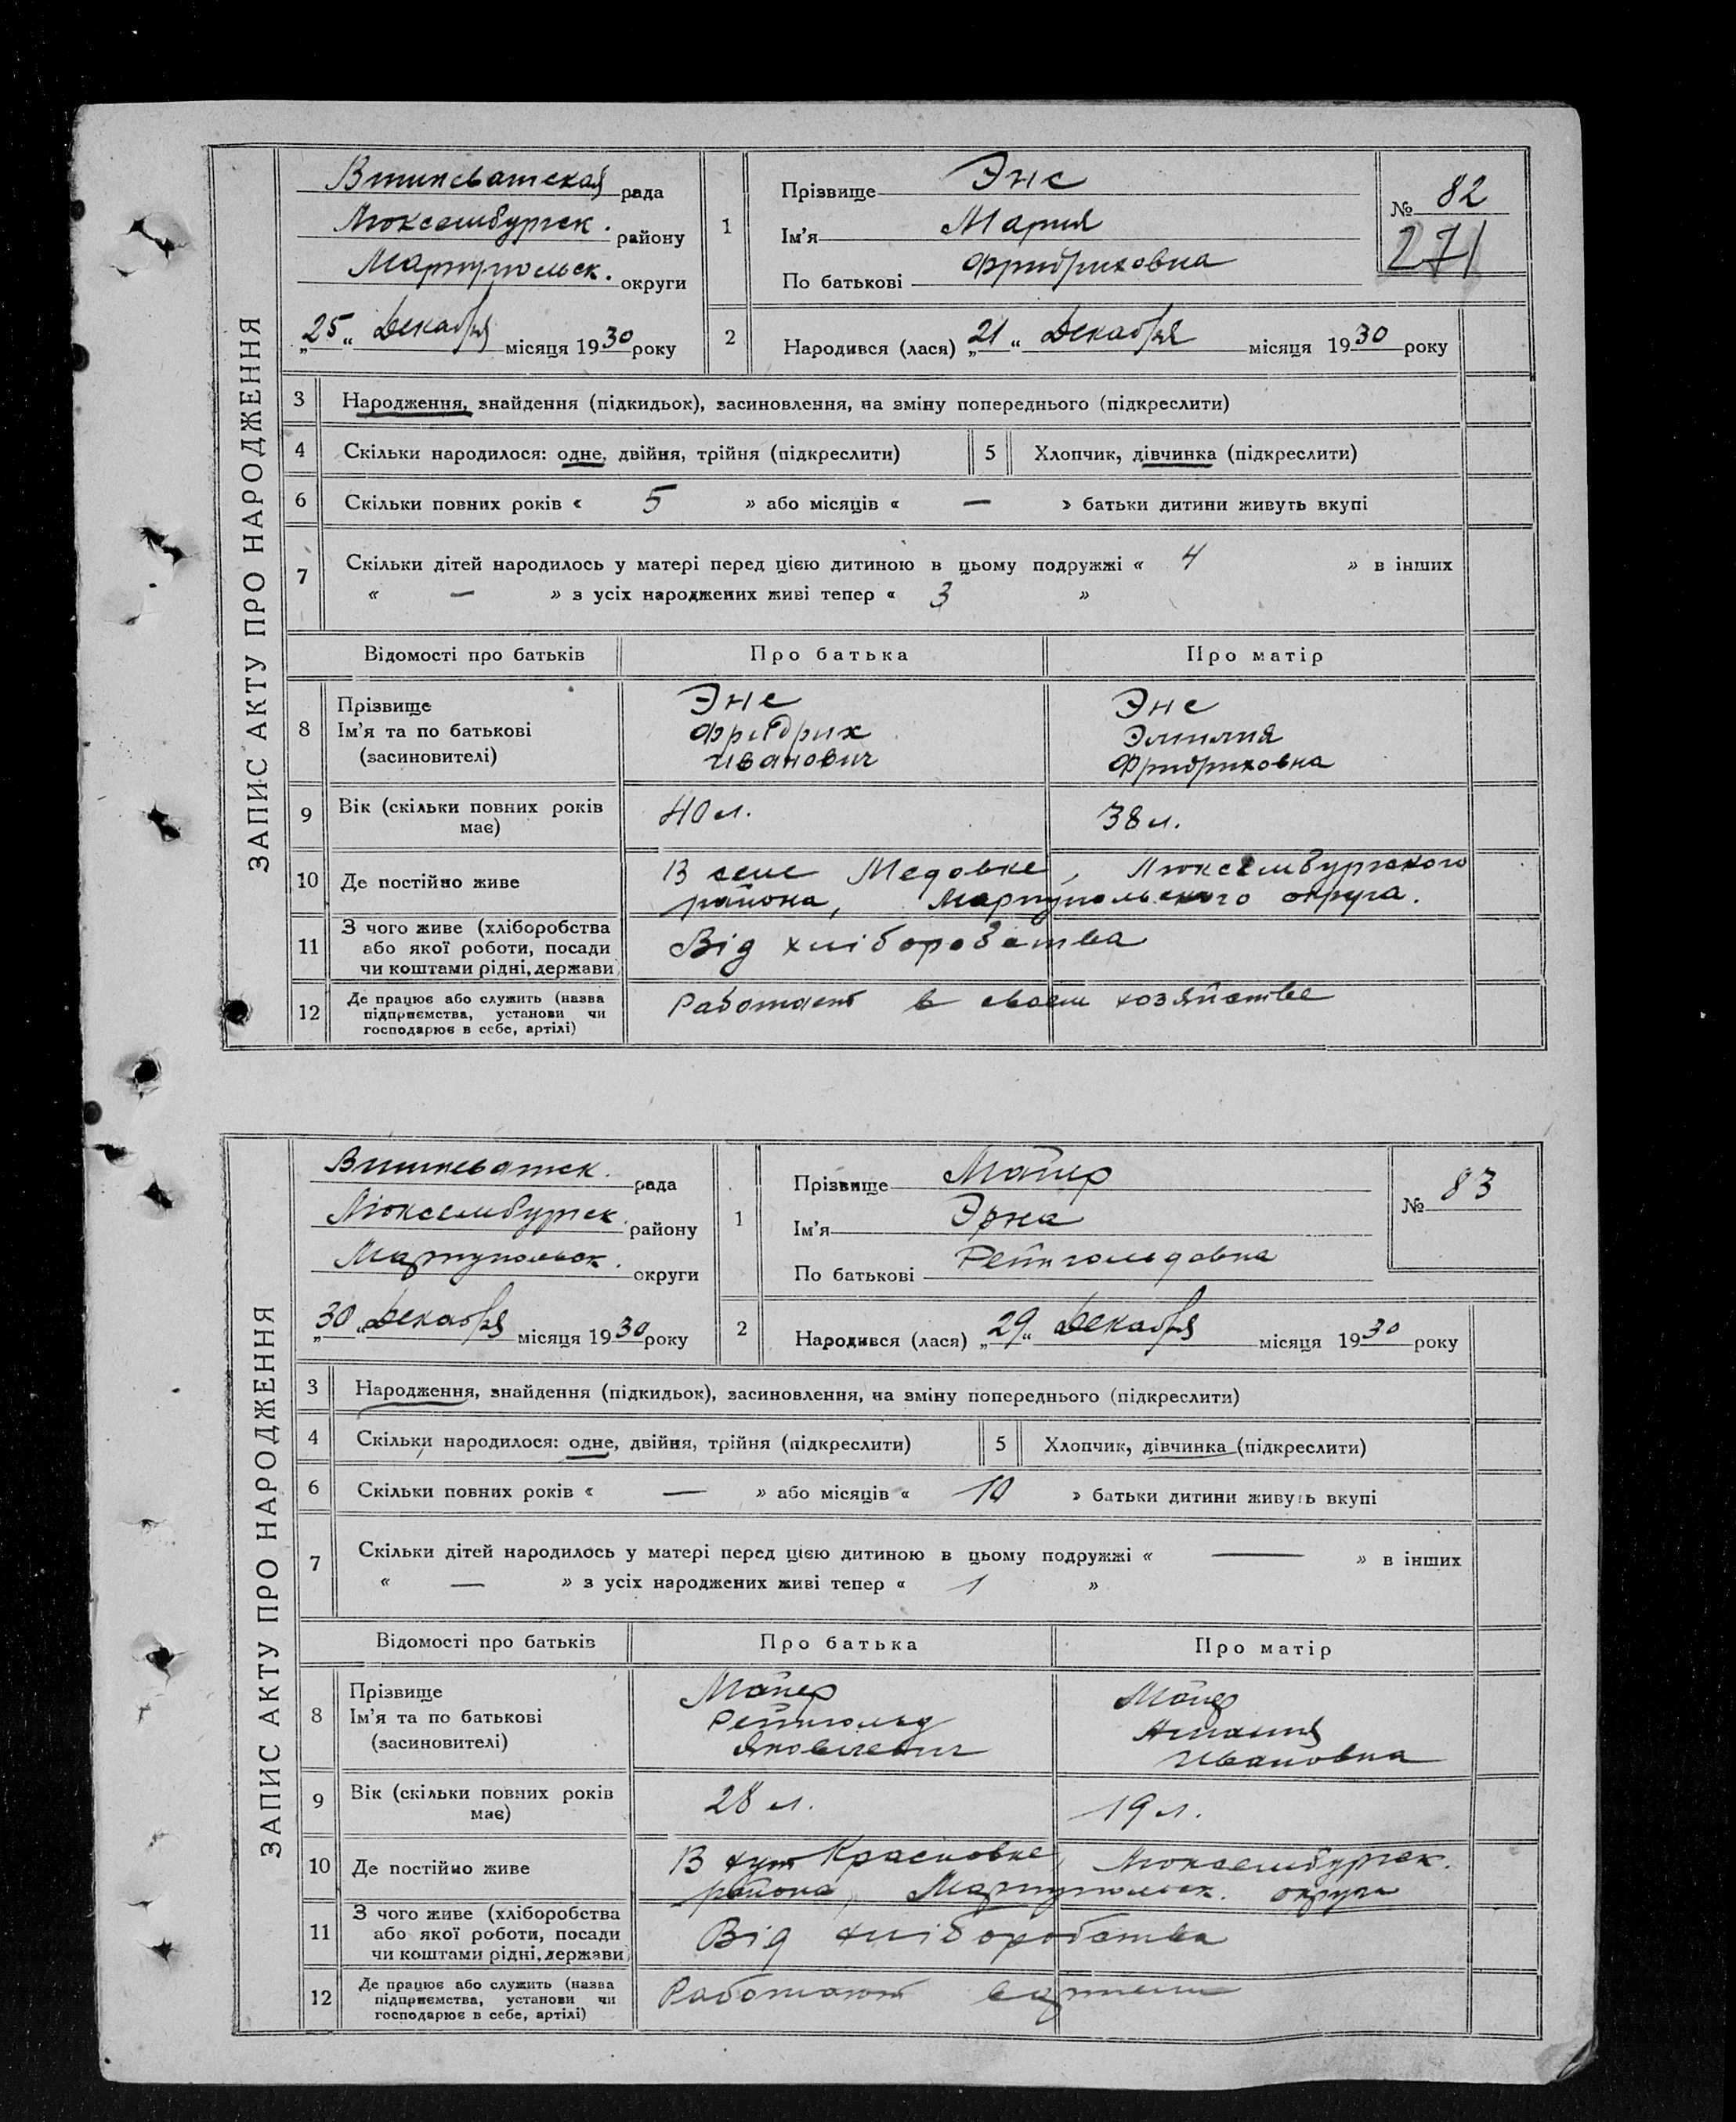 ЗАПИС АКТУ ПРО НАРОДЖЕННЯ
Вишневатская рада
Люксембургск. району
Мариупольск. округи
„25“ Декабря місяця 1930 року
1
Прізвище Энс
Ім'я Мария
По батькові Фридриховна
№ 82
271
2
Народився (лася) „21“ Декабря місяця 1930 року
3 Народження, знайдення (підкидьок), засиновлення, на зміну попереднього (підкреслити)
4 Скільки народилося: одне, двійня, трійня (підкреслити) 5 Хлопчик, дівчинка (підкреслити)
6 Скільки повних років « 5 » або місяців « — » батьки дитини живуть вкупі
7 Скільки дітей народилось у матері перед цією дитиною в цьому подружжі « 4 » в інших
« — » з усіх народжених живі тепер « 3 »
Відомості про батьків Про батька Про матір
8 Прізвище
Ім'я та по батькові
(засиновителі)
Энс
Фридрих
Иванович
Энс
Эмилия
Фридриховна
9 Вік (скільки повних років
має)
40 л. 38 л.
10 Де постійно живе
В селе Медовке, Люксембургского
района, Мариупольского округа.
11 З чого живе (хліборобства
або якої роботи, посади
чи коштами рідні, держави)
Від хліборобства
12 Де працює або служить (назва
підприємства, установи чи
господарює в себе, артілі)
Работают в своем хозяйстве
ЗАПИС АКТУ ПРО НАРОДЖЕННЯ
Вишневатск. рада
Люксембургск. району
Мариупольск. округи
„30“ Декабря місяця 1930 року
1
Прізвище Майер
Ім'я Эрна
По батькові Рейнгольдовна
№ 83
2
Народився (лася) „29“ Декабря місяця 1930 року
3 Народження, знайдення (підкидьок), засиновлення, на зміну попереднього (підкреслити)
4 Скільки народилося: одне, двійня, трійня (підкреслити) 5 Хлопчик, дівчинка (підкреслити)
6 Скільки повних років « — » або місяців « 10 » батьки дитини живуть вкупі
7 Скільки дітей народилось у матері перед цією дитиною в цьому подружжі « — » в інших
« — » з усіх народжених живі тепер « 1 »
Відомості про батьків Про батька Про матір
8 Прізвище
Ім'я та по батькові
(засиновителі)
Майер
Рейнгольд
Яковлевич
Майер
Амалия
Ивановна
9 Вік (скільки повних років
має)
28 л. 19 л.
10 Де постійно живе
В хут Красновке, Люксембургск.
района, Мариупольск. округи
11 З чого живе (хліборобства
або якої роботи, посади
чи коштами рідні, держави)
Від хліборобства
12 Де працює або служить (назва
підприємства, установи чи
господарює в себе, артілі)
Работают в артели